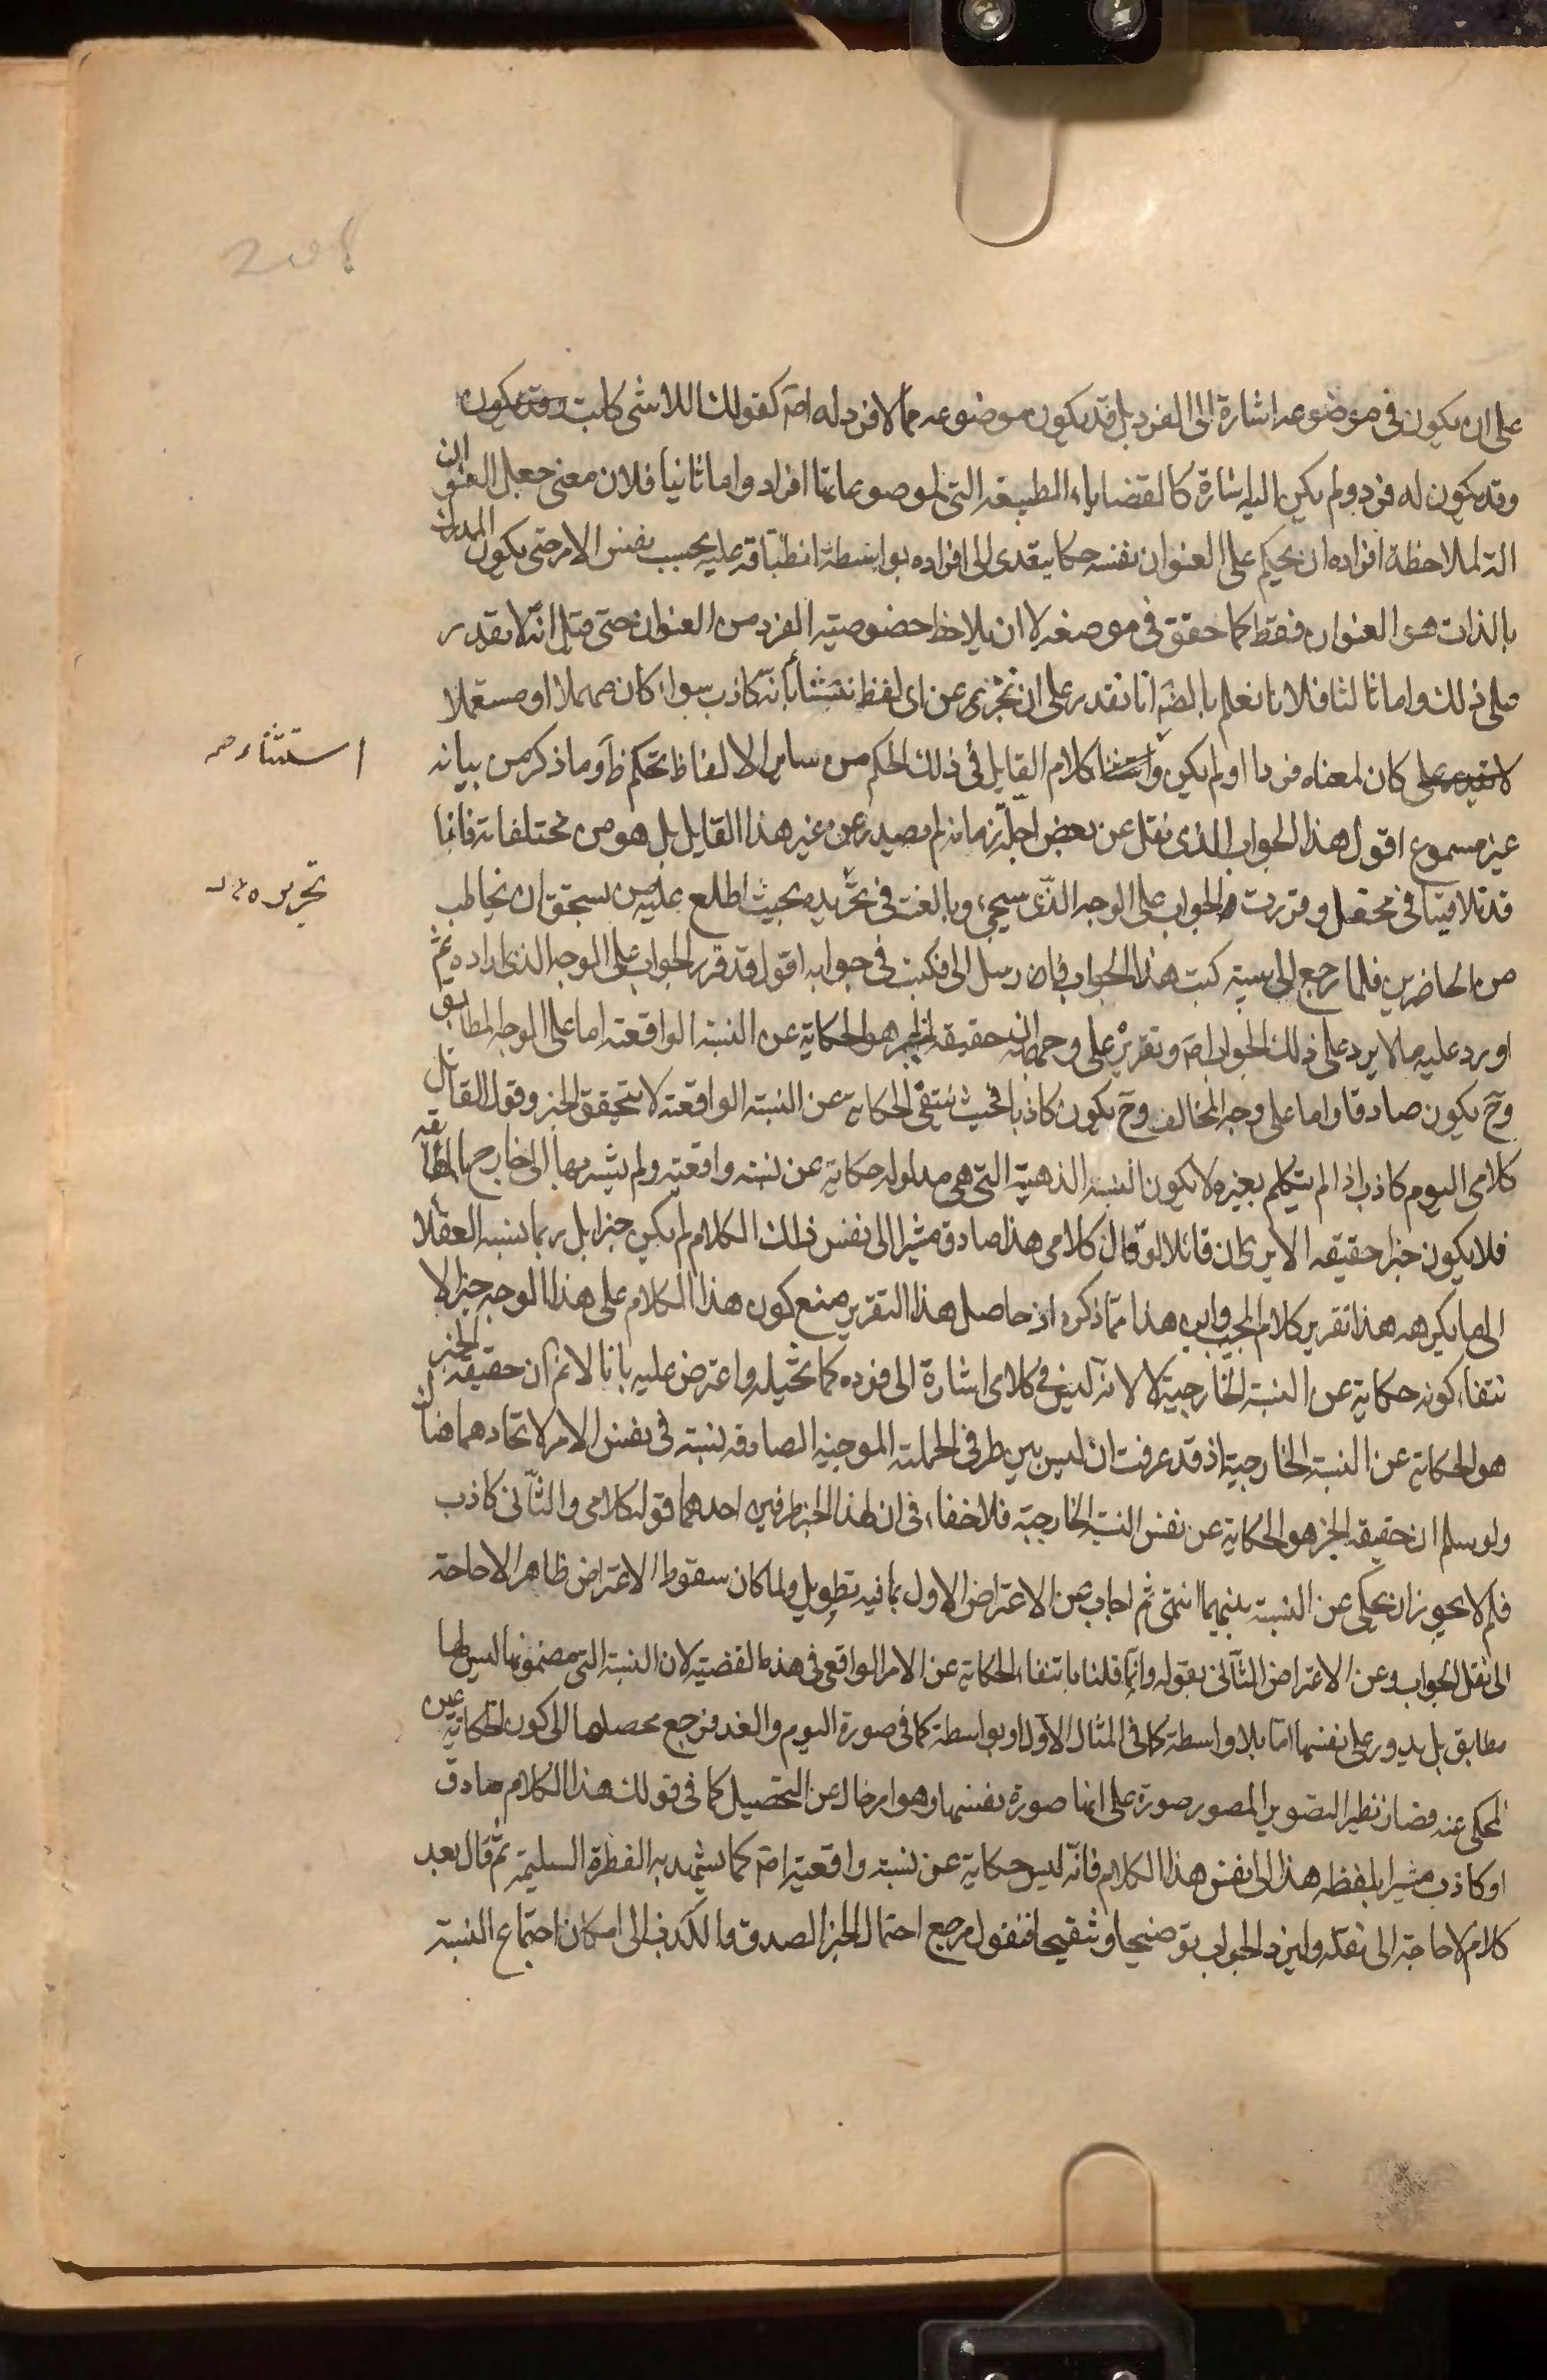 على ان يكون في موضوعه اشارة الى الفرد بل قد يكون موضوعه مما لا فرد له اصَ كقولك اللاشى كاتب وقد يكون
وقد يكون له فرد ولم يكن اليه اشارة كالقضايا الطبيعة التي لموضوعاتها افراد واما ثانيا فلان معنى جعل العنوان
الة لملاحظة افراده ان يحكم على العنوان نفسه حكما يتعدى الى افراده بواسطة انطباقه عليه بحسب نفس الامر حتى يكون المدرك
بالذات هو العنوان فقط كما حقق في موضعه لا ان يلاحظ خصوصية الفرد من العنوان حتى قيل انه لا يقدر
على ذلك واما ثالثا فلانا نعلم بالضَ انا نقدر على ان نخبر عن اى لفظ نشأ بانه كاذب سواء كان مهملا او مستعملا
لا نقدر على كان لمعناه فرد ما او لم يكن واستثنا كلام القايل في ذلك الحكم من ساير الالفاظ تحكم ظَ وما ذكر من بيانه
استثناء صح
غير مسموع اقول هذا الجواب الذى نقل عن بعض اجلة زماننا لم يصدر عن غير هذا القايل بل هو من مختلقاته فانا
قد تلاقينا في محفل وقررت الجواب على الوجه الذى سيجىء وبالغت في تحريره بحيث اطلع عليه من يستحق ان يخاطب
تحريره
من الحاضرين فلما رجع الى بيته كتب هذا الجواب فارسل الى فكتبت في جوابه اقول قد قرر الجواب على الوجه الذى اراده ثم
اورد عليه ما لا يرد على ذلك الجواب اصَ وتقريره على وجهه ان حقيقة الخبر هو الحكاية عن النسبة الواقعة اما على الوجه المطابق
وحَ يكون صادقا واما على وجه المخالف وحَ يكون كاذبا فحيث ينتفى الحكاية عن النسبة الواقعة لا يتحقق الخبر وقول القائل
كلامى اليوم كاذب اذا لم يتكلم بغيره لا يكون النسبة الذهنية التي هي مدلوله حكاية عن نسبة واقعية ولم يشر بها الى خارجها
فلا يكون خبرا حقيقة الا يرى ان قائلا لو قال كلامى هذا صادق مشيرا الى نفس ذلك الكلام لم يكن خبرا بل ربما ينسبه العقلا
الى ما يكرهه هذا تقرير كلام المجيب واين هذا مما ذكره اذ حاصل هذا التقرير منع كون هذا الكلام على هذا الوجه خبرا لا
نتفاء كونه حكاية عن النسبة الخارجية لا لانه ليس في كلامى اشارة الى فرده كما تخيله واعترض عليه بانا لا نم ان حقيقة الخبر
هو الحكاية عن النسبة الخارجية اذ قد عرفت ان ليس بين طرفى الحملية الموجبة الصادقة نسبة في نفس الامر لاتحادهما هناك
ولو سلم ان حقيقة الخبر هو الحكاية عن نفس النسبة الخارجية فلا خفاء في ان لهذا الخبر طرفين احدهما قوله كلامى والثانى كاذب
فلم لا يجوز ان يحكى عن النسبة بينهما انتهى ثم اجاب عن الاعتراض الاول بما فيه تطويل ولما كان سقوط الاعتراض ظاهرا لا حاجة
الى نقل الجواب وعن الاعتراض الثانى بقوله وانما قلنا بانتفاء الحكاية عن الامر الواقعى في هذه القضية لان النسبة التي مضمونها ليس لها
مطابق بل يدور على نفسها اما بلا واسطة كما في المثال الاول او بواسطة كما في صورة اليوم والغد فرجع محصلها الى كون الحكاية عين
المحكى عنه فصار نظير تصوير المصور صورة على انها صورة نفسها وهو امر خال عن التحصيل كما في قولك هذا الكلام صادق
او كاذب مشيرا بلفظه هذا الى نفس هذا الكلام فانه ليس حكاية عن نسبة واقعية اصَ كما يشهد به الفطرة السليمة ثم قال بعد
كلام لا حاجة الى نقله ولنزد الجواب توضيحا وتنقيحا فنقول مرجع احتمال الخبر الصدق والكذب الى امكان اجتماع النسبة